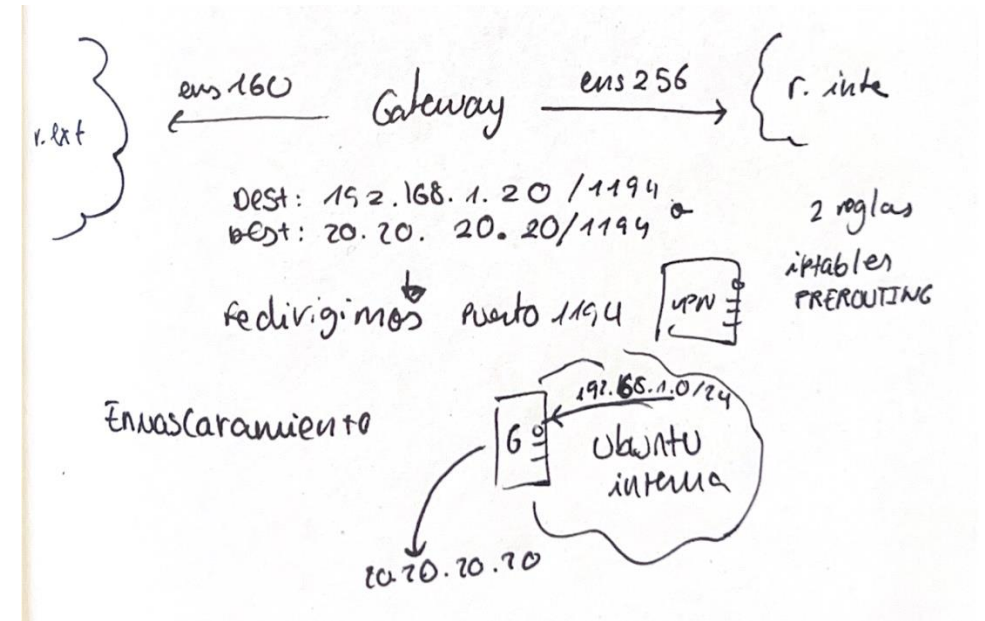 ens160 Gateway ens256
r. ext
r. inte
DEST: 192.168.1.20/1194 o
DEST: 20.20. 20.20/1194
2 reglas
iptables
PREROUTING
redirigimos puerto 1194 VPN
Enmascaramiento
192.168.1.0/24
G
Ubuntu
interna
20.20.20.20